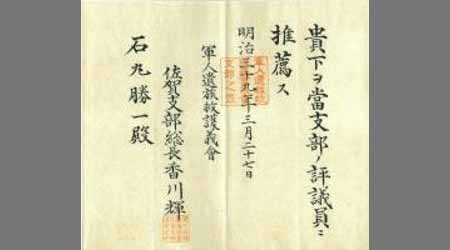 貴下ヲ當支部ノ評議員ニ
推薦ス
明治三十九年三月二十七日
軍人遺族救護義會
佐賀支部総長香川輝
石丸勝一殿